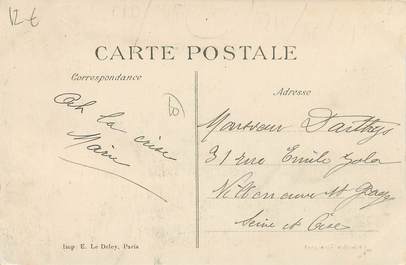 12 €
CARTE POSTALE
Correspondance
Adresse
Ah la crise
Marie
Monsieur
31 rue Emile Zola
Villeneuve St Georges
Seine et Oise
Imp. E. Le Deley, Paris